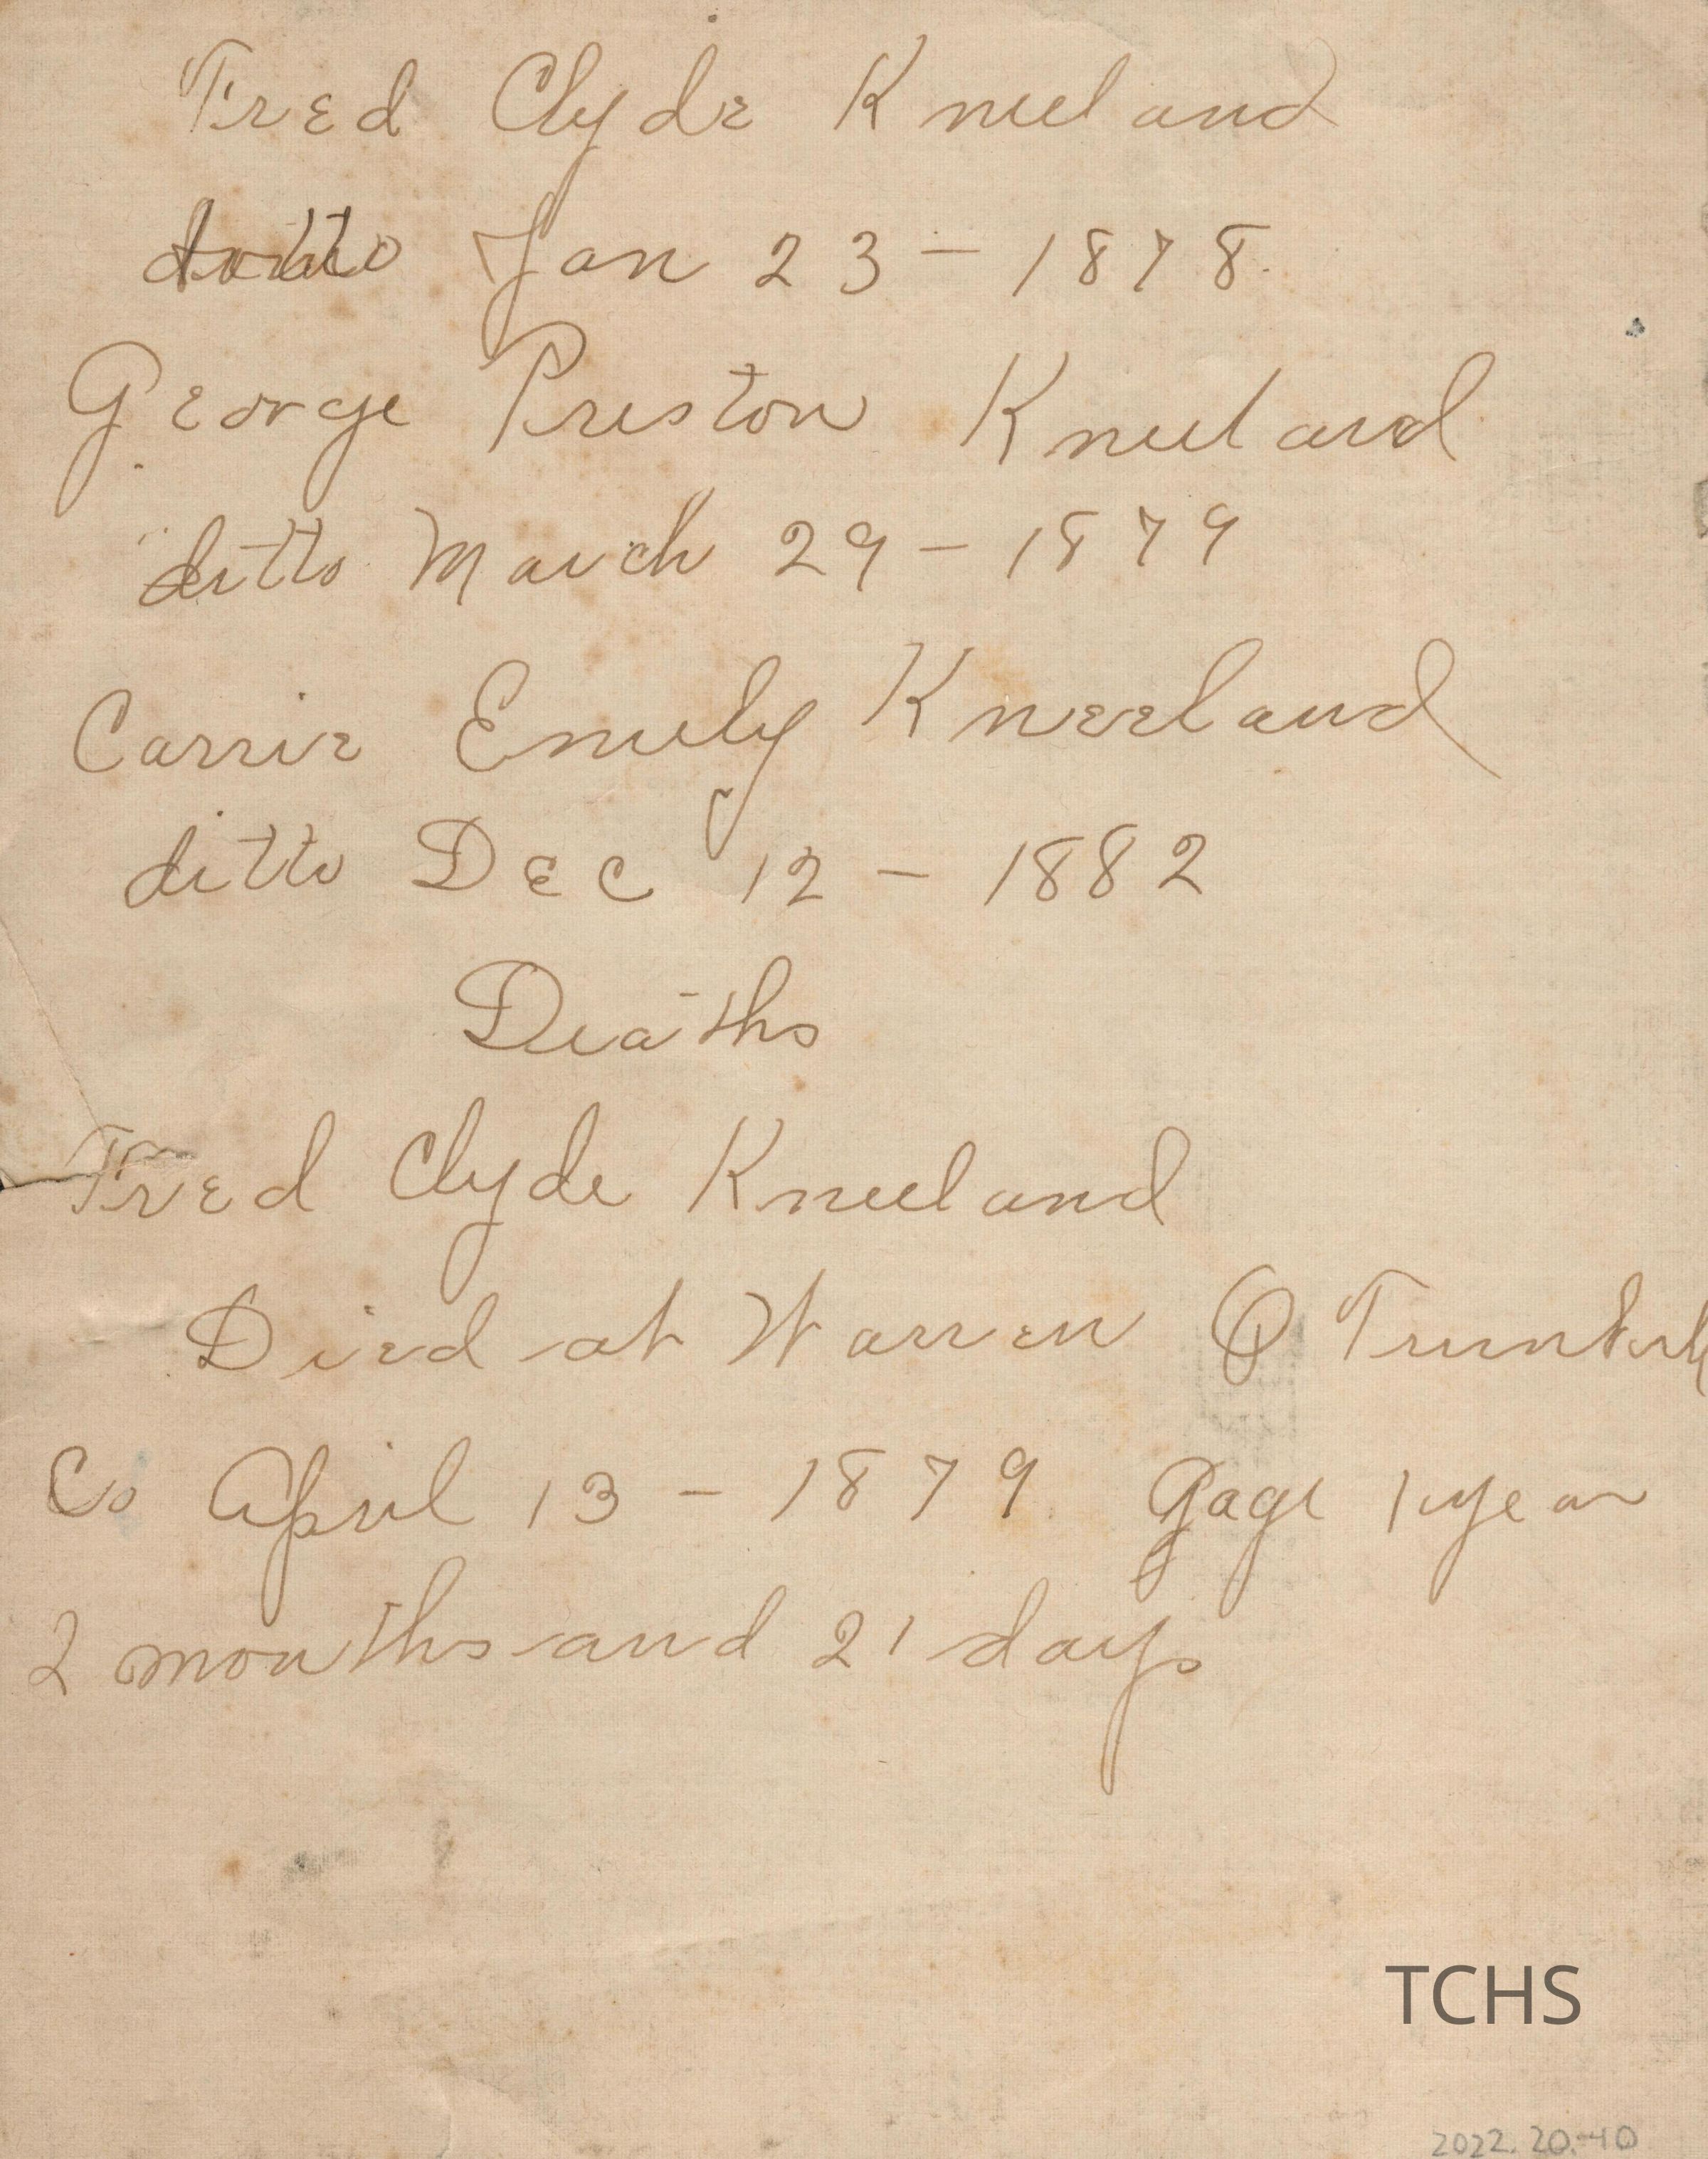 Fred Clyde Kneeland
ditto Jan 23 - 1878.
George Preston Kneeland
ditto March 29 - 1879
Carrie Emily Kneeland
ditto Dec 12 - 1882
Deaths
Fred Clyde Kneeland
Died at Warren O
Co April 13 - 1879 age 1 year
2 months and 21 days
TCHS
2022.20.40